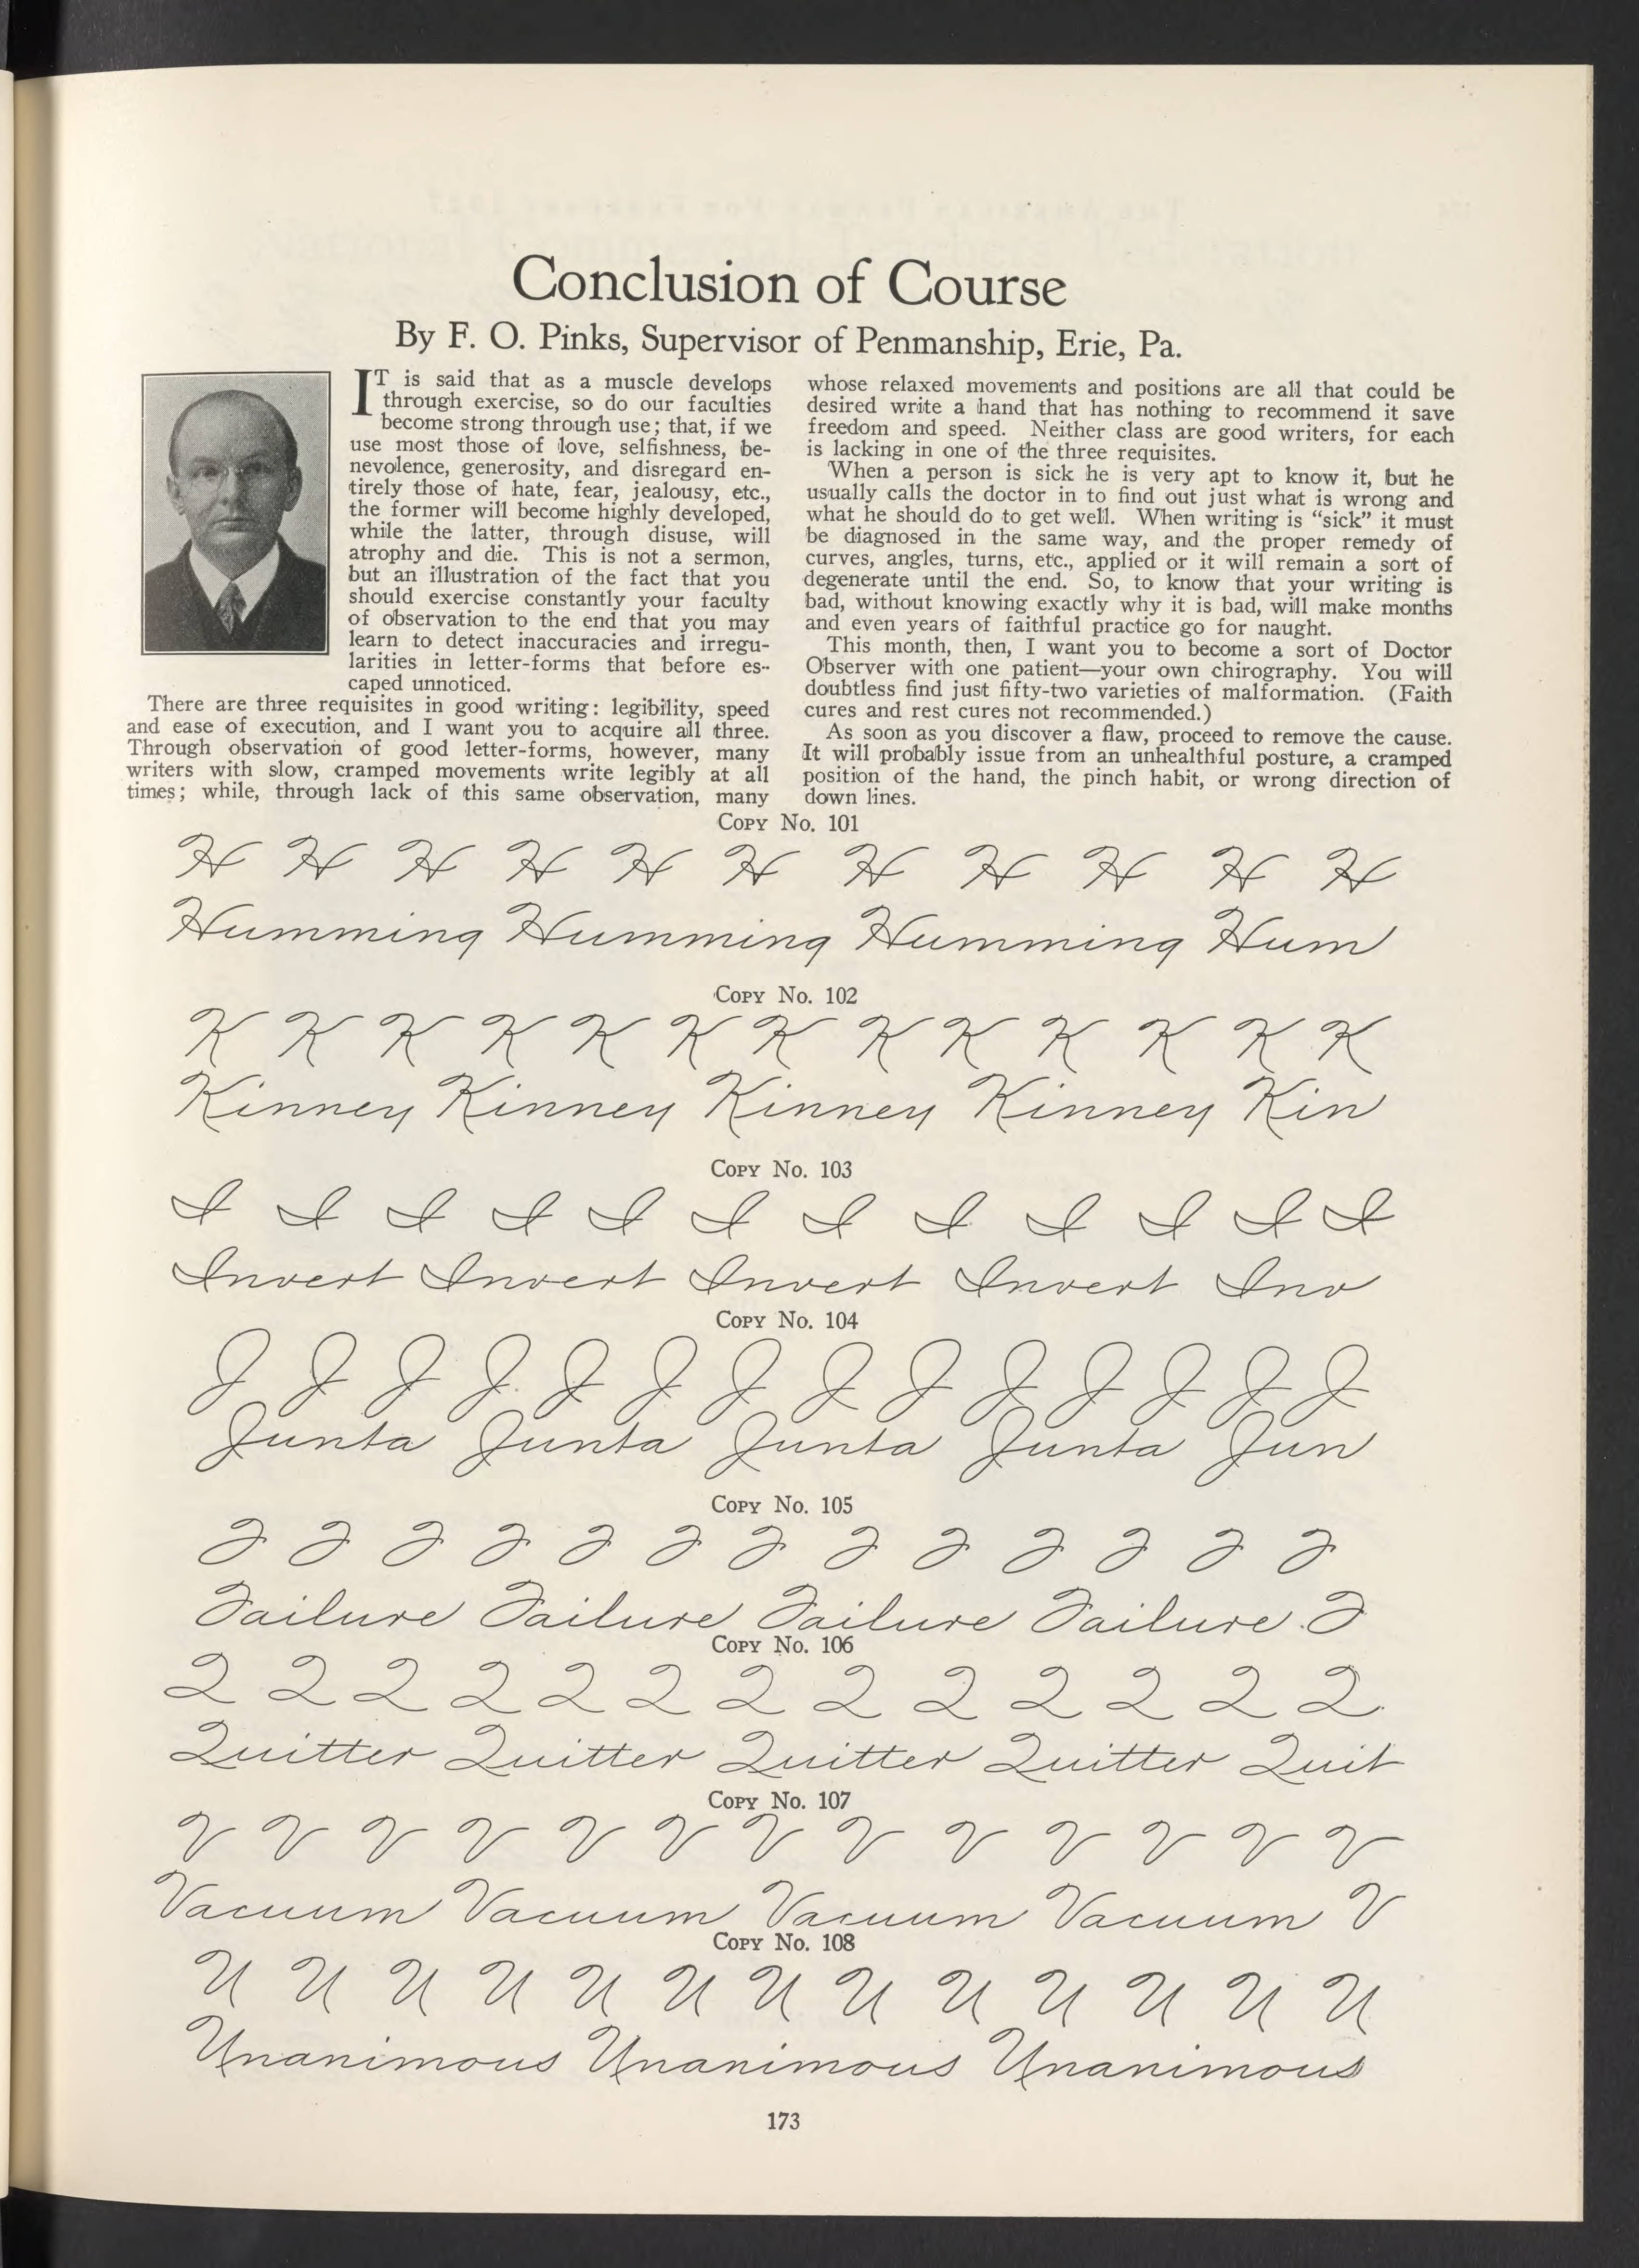 Conclusion of Course
By F. O. Pinks, Supervisor of Penmanship, Erie, Pa.
IT is said that as a muscle develops
through exercise, so do our faculties
become strong through use; that, if we
use most those of love, selfishness, be-
nevolence, generosity, and disregard en-
tirely those of hate, fear, jealousy, etc.,
the former will become highly developed,
while the latter, through disuse, will
atrophy and die. This is not a sermon,
but an illustration of the fact that you
should exercise constantly your faculty
of observation to the end that you may
learn to detect inaccuracies and irregu-
larities in letter-forms that before es-
caped unnoticed.
There are three requisites in good writing: legibility, speed
and ease of execution, and I want you to acquire all three.
Through observation of good letter-forms, however, many
writers with slow, cramped movements write legibly at all
times; while, through lack of this same observation, many
whose relaxed movements and positions are all that could be
desired write a hand that has nothing to recommend it save
freedom and speed. Neither class are good writers, for each
is lacking in one of the three requisites.
When a person is sick he is very apt to know it, but he
usually calls the doctor in to find out just what is wrong and
what he should do to get well. When writing is "sick" it must
be diagnosed in the same way, and the proper remedy of
curves, angles, turns, etc., applied or it will remain a sort of
degenerate until the end. So, to know that your writing is
bad, without knowing exactly why it is bad, will make months
and even years of faithful practice go for naught.
This month, then, I want you to become a sort of Doctor
Observer with one patient—your own chirography. You will
doubtless find just fifty-two varieties of malformation. (Faith
cures and rest cures not recommended.)
As soon as you discover a flaw, proceed to remove the cause.
It will probably issue from an unhealthful posture, a cramped
position of the hand, the pinch habit, or wrong direction of
down lines.
Copy No. 101
H H H H H H H H H H H
Humming Humming Humming Hum
Copy No. 102
K K K K K K K K K K K K K
Kinney Kinney Kinney Kinney Kin
Copy No. 103
I I I I I I I I I I I I
Invert Invert Invert Invert Inv
Copy No. 104
J J J J J J J J J J J J J J
Junta Junta Junta Junta Jun
Copy No. 105
F F F F F F F F F F F F F
Failure Failure Failure Failure F
Copy No. 106
Q Q Q Q Q Q Q Q Q Q Q Q Q
Quitter Quitter Quitter Quitter Quit
Copy No. 107
V V V V V V V V V V V V V
Vacuum Vacuum Vacuum Vacuum V
Copy No. 108
U U U U U U U U U U U U U
Unanimous Unanimous Unanimous
173